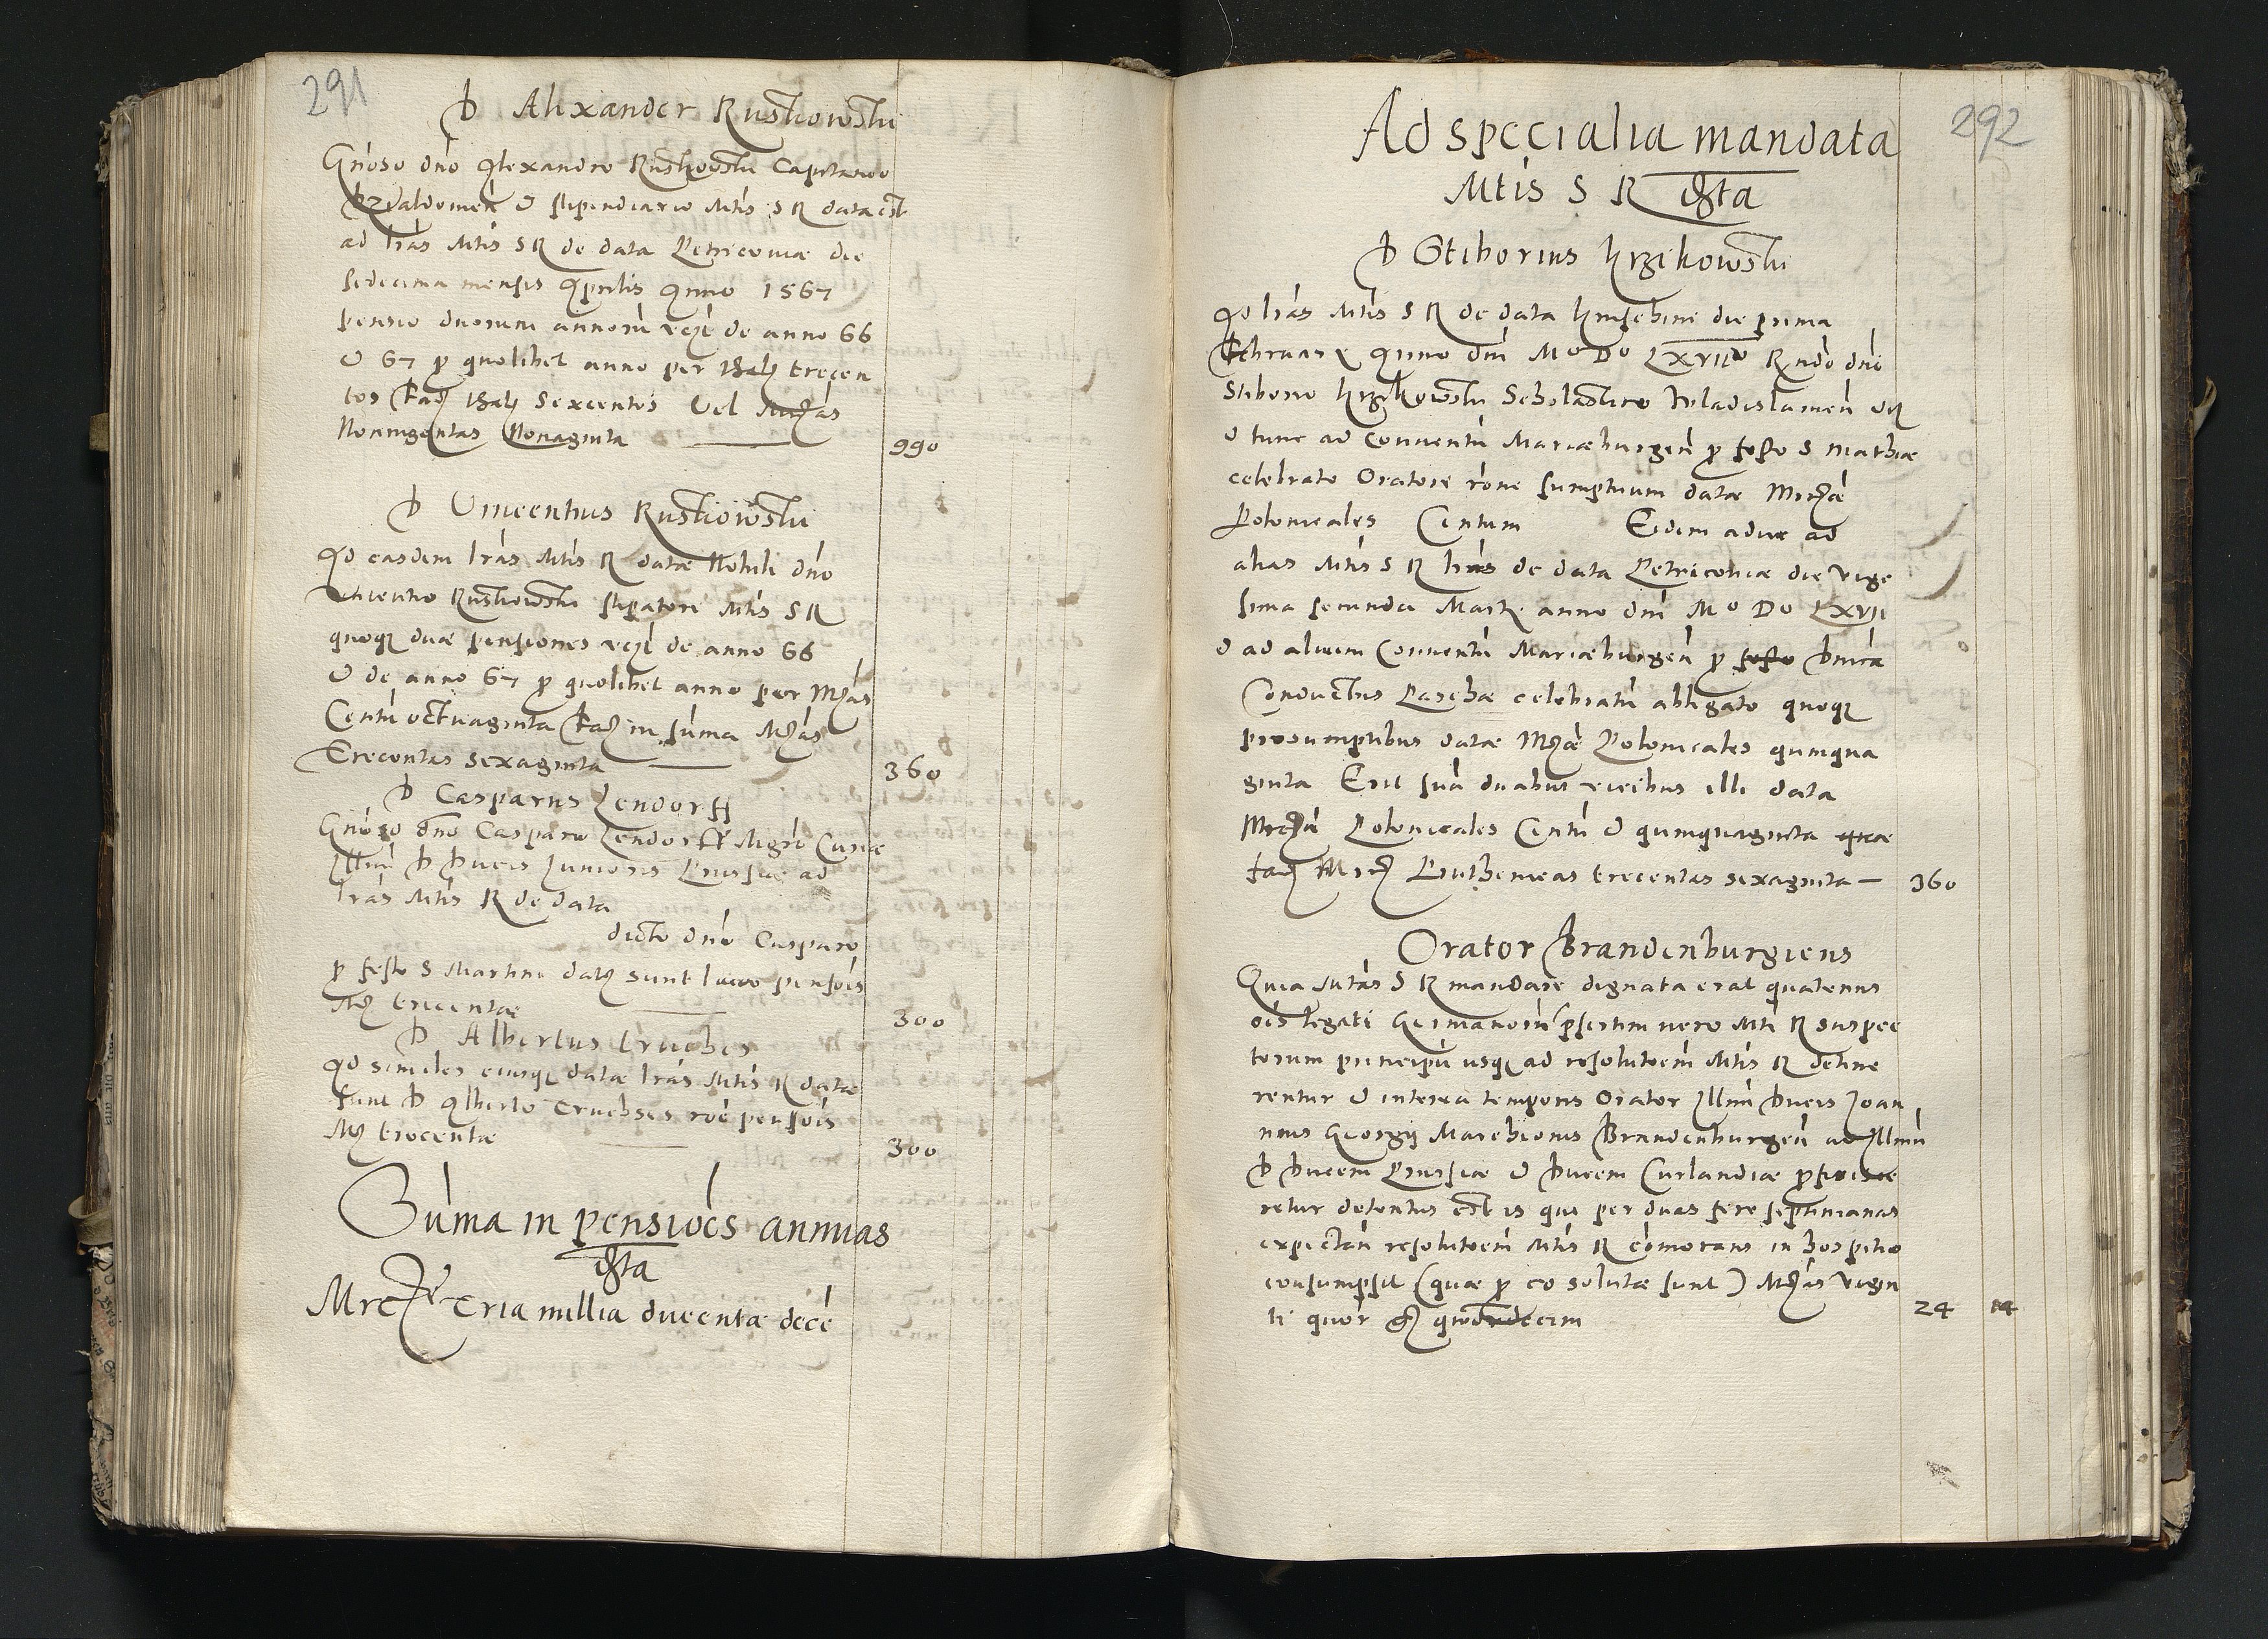 291
D Alexander Ruskowski
Gnoso dno Alexandro Ruskowski Capitaneo
et stipendiario Mtis S R data est
ad lras Mtis S R de data Petricoviæ die
sedecima mensis Aprilis Anno 1567
pensio duorum annorũ vcȝt de anno 66
et 67 p quolibet anno per talȝ trecen
tos facȝ talȝ sexcentos vel Mrȝas
Noningentas Nonaginta 990
D Vincentius Ruskowski
Ad easdem lras Mtis R datæ Nobili dno
Vincentio Ruskowski stipatori Mtis S R
quoqȝ duæ pensiones vcȝt de anno 66
et de anno 67 p quolibet anno per Mȝas
Centũ octuaginta facȝ in suma Mȝas
Trecentas sexaginta 360
D Casparus Lendorff
Gnoso dno Casparo Lendorff Mgro Curiæ
Illmi D Ducis Junioris Prussiæ ad
lras Mtis R de data
dicto dno Casparo
p festo S Martini datȝ sunt loco pensois
Mȝ trecentæ 300
D Albertus Truchses
Ad similes eiusqȝ datæ lras Mtis R datæ
sunt D Alberto Truchses roe pensois
Mȝ trecentæ 300
Suma in pensioes annuas
ista
Mrcȝ Tria millia ducentæ decẽ
292
Ad specialia mandata
Mtis S R ista
D Stiborius Krzikowski
Ad lras Mtis S R de data Knischine die prima
Februarȝ Anno dni Mo Do LXVIIo Rndo dno
Stiborio Krzikowski Scholastico Wladislauieñ
et tunc ad Conuentũ Mariæburgeñ p festo S Mathiæ
celebrato Oratore rone sumptuum datæ Mrcȝæ
Polonicales Centum Eidem aduc ad
alias Mtis S R lras de data Petricoviæ die vige
sima secunda Martȝ anno dni Mo Do LXVII
et ad alium Conuentũ Mariæburgeñ p festo Dnica
Conductus Paschæ celebratũ ablegato quoqȝ
pro sumptibus datæ Mȝæ Polonicales quinqua
ginta Erit suã duabus vicibus illi data
Mrcȝa Polonicales Centũ et quinquaginta quæ
facȝ Mrcȝ Pruthenicas trecentas sexaginta 360
Orator Brandenburgiens
Quia Mtas S R mandare dignata erat quatenus
oes legati Germanorũ psertim vero Mti R suspec
torum principũ usqȝ ad resolutoem Mtis R detine
rentur et interea temporis Orator Illmi Ducis Joan
nis Georgij Marchionis Brandenburgeñ ad Illmũ
D Ducem Prussiæ et Ducem Curlandiæ pficisce
retur detentus est is qui per duas fere septimanas
expectañ resolutoem Mtis R comorans in hospitio
consumpsit (quæ p eo solutæ sunt) Mȝas vigin
ti quor gȝ quodrdecim 24 14